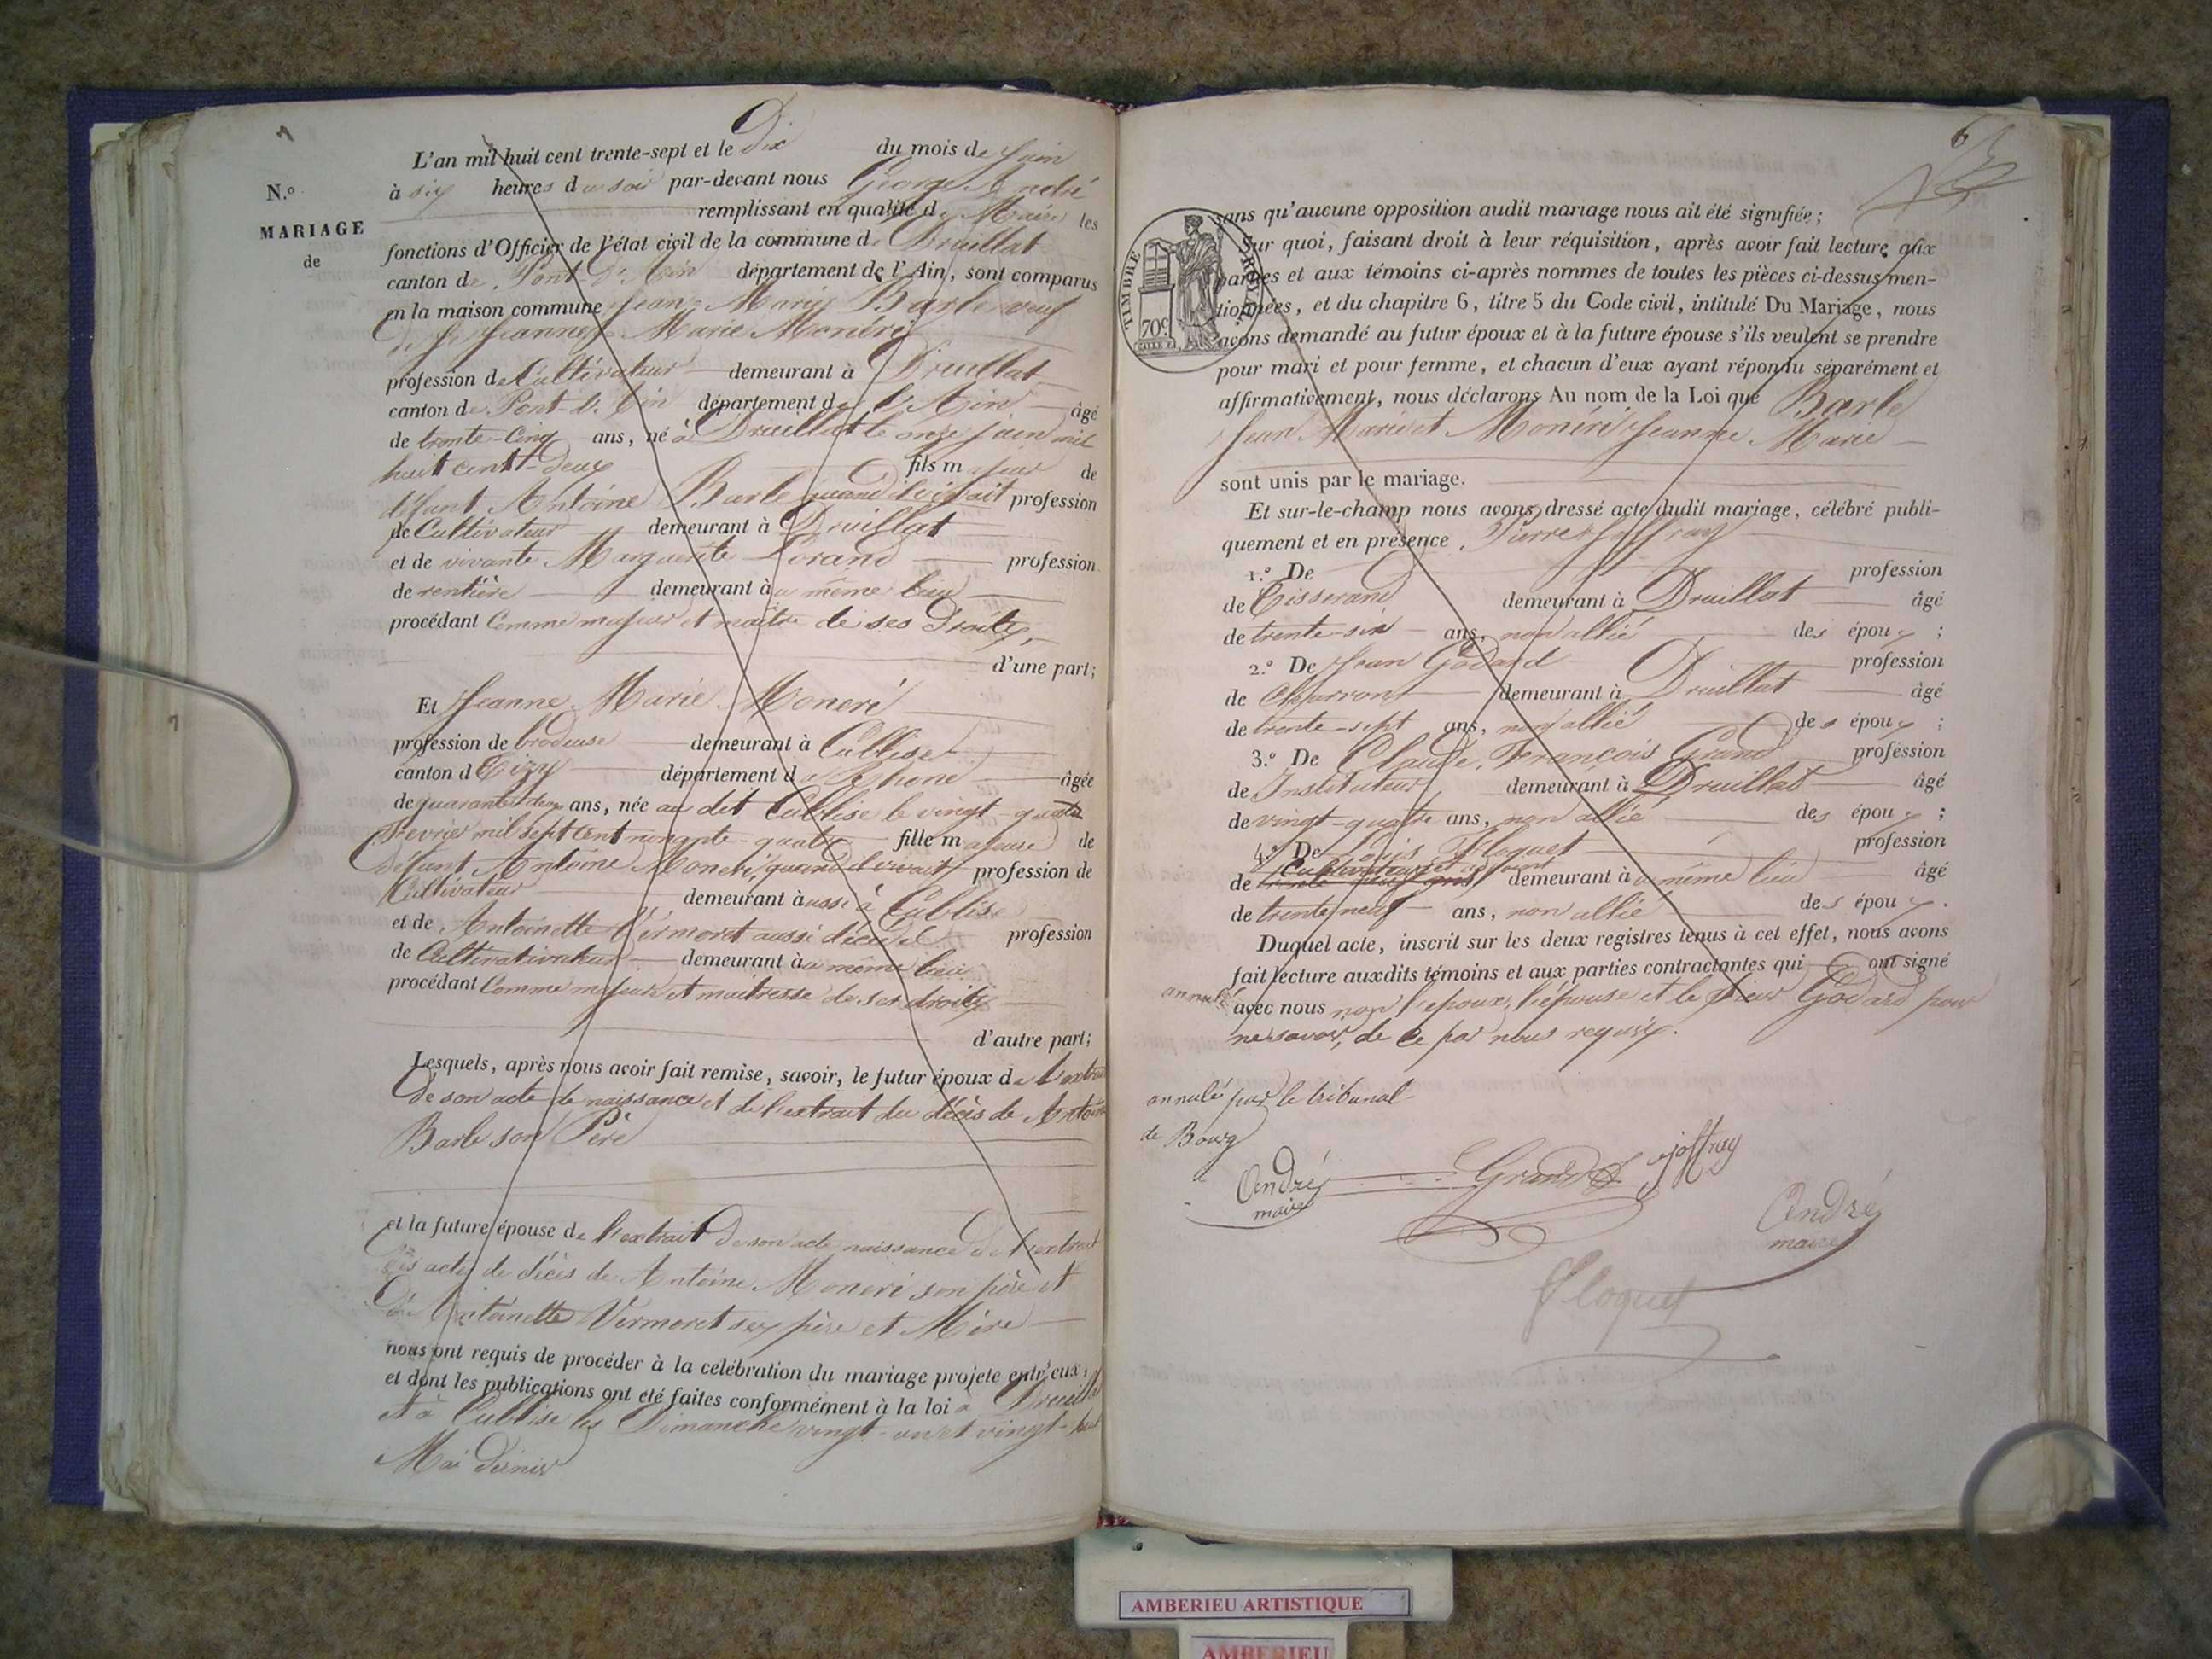 N.o
MARIAGE
de
L'an mil huit cent trente-sept et le Dix du mois de Juin
à six heures du soir par-devant nous George André
remplissant en qualité de Maire les
fonctions d'Officier de l'état civil de la commune de Druillat
canton de Pont d'Ain département de l'Ain, sont comparus
en la maison commune Jean Marie Barle veuf
de Jeanne Marie Moneri
profession de Cultivateur demeurant à Druillat
canton de Pont-d'Ain département de l'Ain âgé
de trente-cinq ans, né à Druillat le onze juin mil
huit cent deux fils majeur de
défunt Antoine Barle quand il vivait profession
de Cultivateur demeurant à Druillat
et de vivante Marguerite Lorand profession
de rentière demeurant à même lieu
procédant comme majeur et maître de ses droits,
d'une part;
Et Jeanne Marie Moneri
profession de brodeuse demeurant à Cublise
canton d Tizy département du Rhone âgée
de quarante deux ans, née au dit Cublise le vingt-quatre
Fevrier mil sept cent nonante-quatre fille majeure de
défunt Antoine Moneri, quand il vivait profession de
Cultivateur demeurant aussi à Cublise
et de Antoinette Vermoret aussi décédée profession
de Cultivativateur demeurant à même lieu
procédant comme majeure et maitresse de ses droits
d'autre part;
Lesquels, après nous avoir fait remise, savoir, le futur époux de l'extrait
de son acte de naissance et de l'extrait du décès de Antoine
Barle son Père
et la future épouse de l'extrait de son acte naissance de l'extrait
des actes de décès de Antoine Moneri son père et
de Antoinette Vermoret ses père et Mère
nous ont requis de procéder à la celébration du mariage projeté entr'eux,
et dont les publications ont été faites conformément à la loi à Druillat
et à Cublise les Dimanche vingt-un et vingt-huit
Mai dernier
6
TIMBRE ROYAL
70c
sans qu'aucune opposition audit mariage nous ait été signifiée;
Sur quoi, faisant droit à leur réquisition, après avoir fait lecture aux
parties et aux témoins ci-après nommes de toutes les pièces ci-dessus men-
tionnées, et du chapitre 6, titre 5 du Code civil, intitulé Du Mariage, nous
avons demandé au futur époux et à la future épouse s'ils veulent se prendre
pour mari et pour femme, et chacun d'eux ayant répondu séparément et
affirmativement, nous déclarons Au nom de la Loi que Barle
Jean Marie et Moneri Jeanne Marie
sont unis par le mariage.
Et sur-le-champ nous avons dressé acte dudit mariage, célébré publi-
quement et en présence, Pierre Joffray
1.o De profession
de Tisserand demeurant à Druillat âgé
de trente-six ans, non allié des époux;
2.o De Jean Godard profession
de Charron demeurant à Druillat âgé
de trente-sept ans, non allié des époux;
3.o De Claude François Grand profession
de Instituteur demeurant à Druillat âgé
de vingt-quatre ans, non allié des époux;
4.o De Louis Floquet profession
Cultivateur
de demeurant à même lieu âgé
de trente neuf ans, non allié des époux.
Duquel acte, inscrit sur les deux registres tenus à cet effet, nous avons
fait lecture auxdits témoins et aux parties contractantes qui ont signé
avec nous non l'époux, l'épouse et le sieur Godard pour
ne savoir, de ce par nous requis.
annulé
annulé par le tribunal
de Bourg
André
maire
Grand
Joffray
André
maire
Floquet
AMBERIEU ARTISTIQUE
AMBERIEU